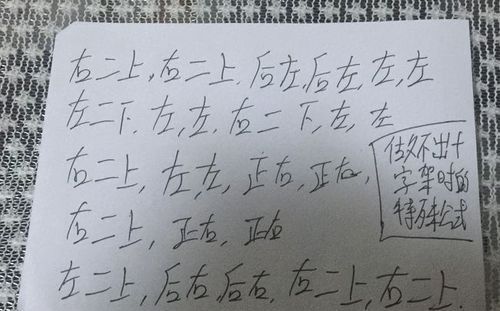 右二上,右二上.后左,后左,左,左
左二下,左,左,右二下,左,左
右二上,左,左,正右,正右,
右二上,正右,正右
左二上,后右,后右,右二上,右二上.
做不出十
字架时的
特殊公式